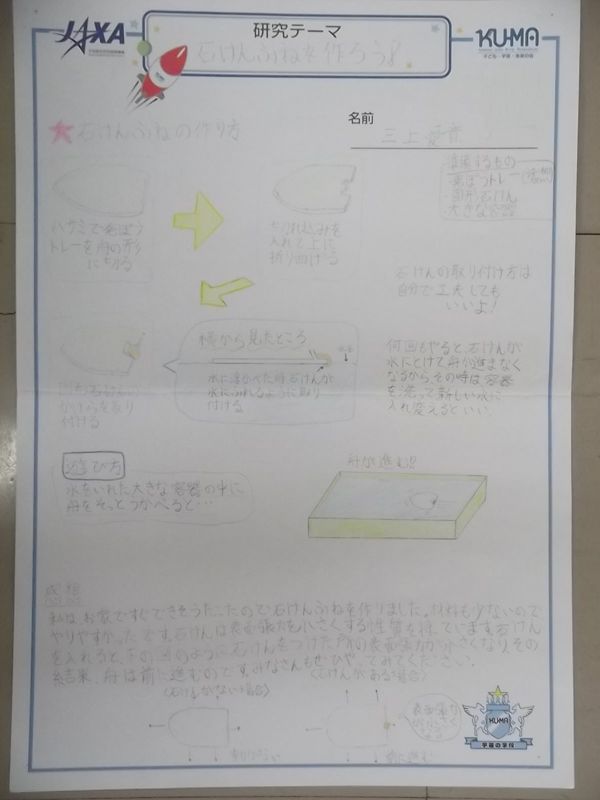 JAXA
研究テーマ
石けんふねを作ろう♪
KU-MA
子ども・宇宙・未来の会
名前
三上
石けんふねの作り方
準備するもの
・発ぽうトレー
・固形石けん
・大きな容器
ハサミで発ぽう
トレーを舟の形
に切る
切れ込みを
入れて上に
折り曲げる
石けんの取り付け方は
自分で工夫しても
いいよ!
横から見たところ
水に浮かべた時石けんが
水にふれるように取り
付ける
石けんの
かけらを取り
付ける
何回もやると、石けんが
水にとけて舟が進まなく
なるから、その時は容器
を洗って新しい水に
入れ変えるといい。
遊び方
水をいれた大きな容器の中に
舟をそっとうかべると…
舟が進む!!
感想
私は、お家ですぐできそうだったので石けんふねを作りました。材料も少ないので
やりやすかったです。石けんは表面張力を小さくする性質を持っています。石けん
を入れると、下の図のように石けんをつけた所の表面張力が小さくなり、その
結果、舟は前に進むのです。みなさんもぜひやってみてください。
(石けんがない場合)
(石けんがある場合)
表面張力
が小さく
なる
動かない
前に進む
KU-MA
宇宙の学校